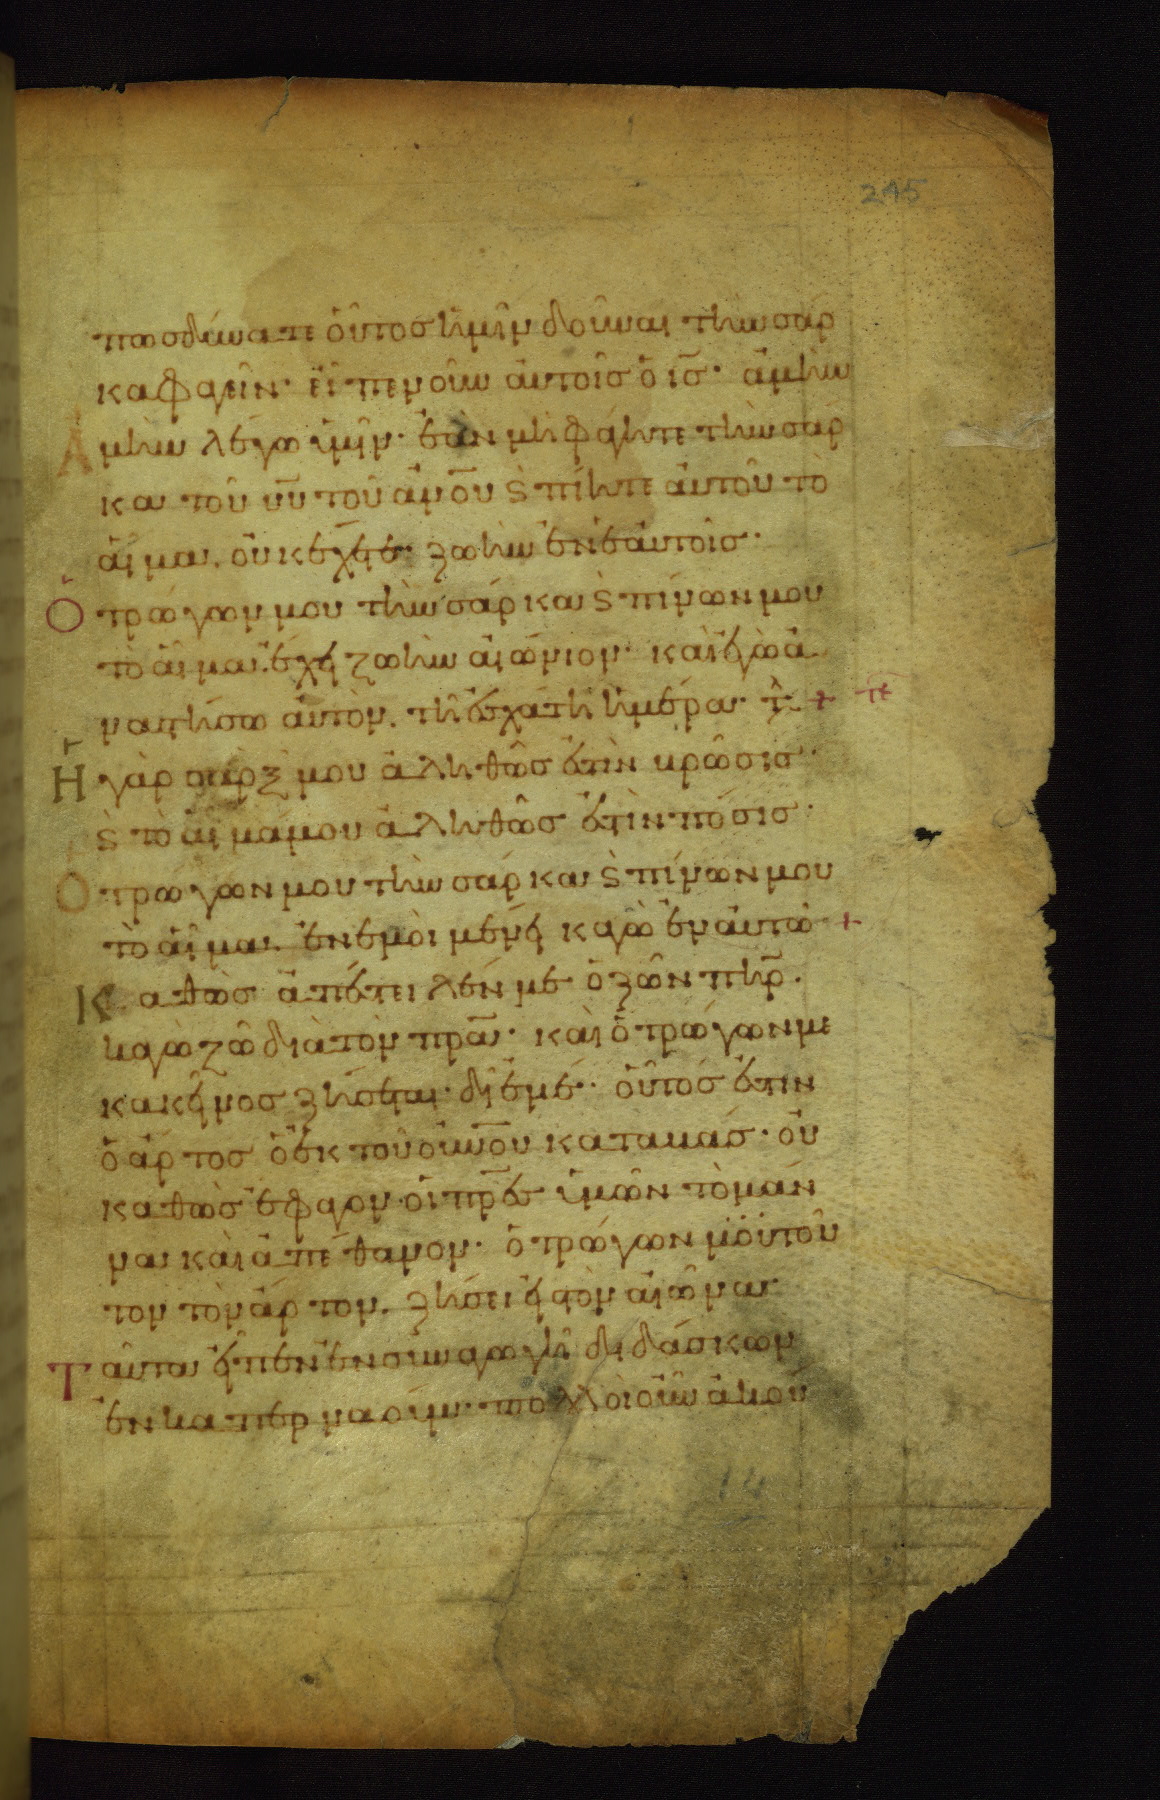 245
πωσ δύναται οὗτοσ ἡμῖν δοῦναι τὴν σάρ
κα φαγεῖν· εἶπεν οὖν αὐτοῖσ ὁ ις̅· ἀμὴν
ἀμὴν λέγω ὑμῖν· ἐὰν μὴ φάγητε τὴν σάρ
κα τοῦ υυ̅ τοῦ ανο̅υ ϗ πίητε αὐτοῦ τὸ
αἷμα. οὐκ ἔχετε ζωὴν ἐν ἑαυτοῖσ·
Ὁ τρώγων μου τὴν σάρκα ϗ πίνων μου
τὸ αἷμα· ἔχει ζωὴν αἰώνιον· καὶ ἐγὼ ἀ
ναστήσω αὐτὸν. τῆ ἐσχάτη ἡμέρα· +
Ἡ γὰρ σάρξ μου ἀληθῶσ ἐστὶν βρῶσισ·
ϗ τὸ αἷμά μου ἀληθῶσ ἐστὶν πόσισ·
Ὁ τρώγων μου τὴν σάρκα ϗ πίνων μου
τὸ αἷμα. ἐν ἐμοὶ μένει καγὼ ἐν αὐτῶ +
Καθὼσ ἀπέστειλέν με ὁ ζῶν πηρ̅.
καγὼ ζῶ διὰ τὸν πρα̅· καὶ ὁ τρώγων με
κακεῖνοσ ζήσεται δι ἐμέ· οὗτόσ ἐστιν
ὁ ἄρτοσ ὁ ἐκ τοῦ οὐνο̅υ καταβάσ· οὐ
καθὼσ ἔφαγον οἱ πρε̅σ ὑμῶν τὸ μάν
να καὶ ἀπέθανον· ὁ τρώγων μου τοῦ
τον τὸν ἄρτον. ζήσει εἰσ τὸν αἰῶνα·
Ταῦτα εἶπεν ἐν συναγωγῆ διδάσκων
ἐν καπερναούμ· πολλοὶ οὖν ἀκού